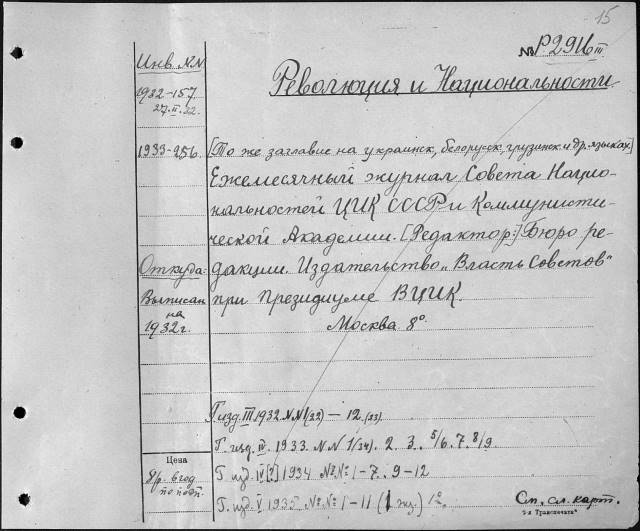 15
№ Р.2916 III
Революция и Национальности.
Инв. NN
1932-157
27.II.32.
1933-956.
[То же заглавие на украинск, белорусск, грузинск и др. языках]
Ежемесячный журнал Совета Нацио-
нальностей ЦИК СССР и Коммунисти-
ческой Академии. [Редактор:] Бюро ре-
дакции. Издательство „Власть Советов"
при Президиуме ВЦИК.
Москва 8°
Откуда:
Выписан
на
1932 г.
Г. изд. III 1932 NN 1(22) – 12.(33).
Г. изд. IV. 1933. N N 1(34). 2. 3. 5/6. 7. 8/9.
Г. изд. IV[?] 1934 №№ 1-7. 9-12
Г. изд. V 1935 №№ 1-11 (1 экз.) 12.
Цена
8 р. в год
по подп.
См. сл. карт.
7-я Транспечати